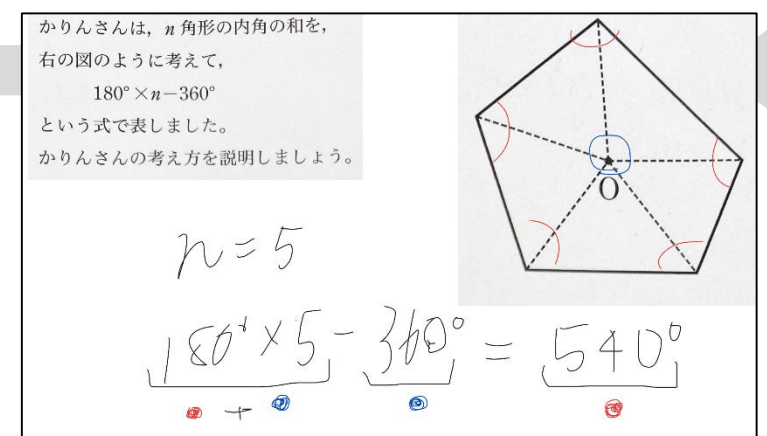 かりんさんは，n 角形の内角の和を，
右の図のように考えて，
180°×n−360°
という式で表しました。
かりんさんの考え方を説明しましょう。
O
n=5
180°×5−360°=540°
+